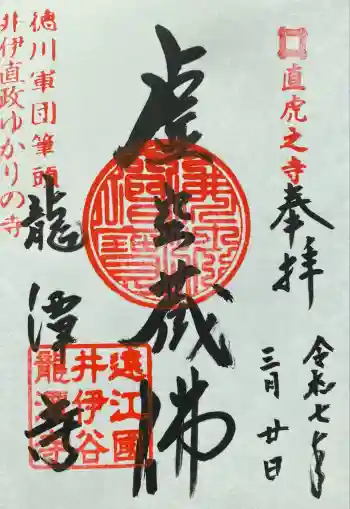 直虎之寺
奉拝
令和七年
三月廿日
虚空蔵佛
龍潭寺
徳川軍団筆頭
井伊直政ゆかりの寺
遠江國
井伊谷
龍潭寺